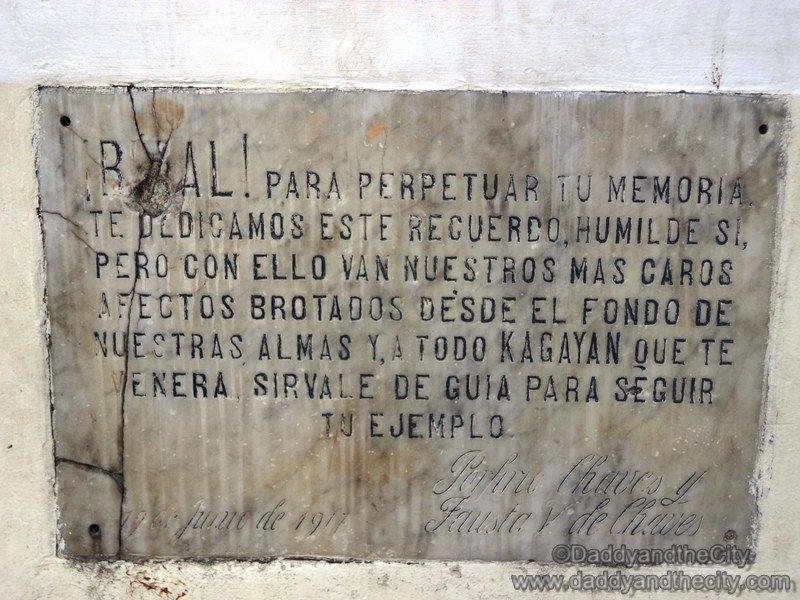 ¡RIZAL! PARA PERPETUAR TU MEMORIA,
TE DEDICAMOS ESTE RECUERDO, HUMILDE SI,
PERO CON ELLO VAN NUESTROS MAS CAROS
AFECTOS BROTADOS DESDE EL FONDO DE
NUESTRAS ALMAS Y, A TODO KAGAYAN QUE TE
VENERA, SIRVALE DE GUIA PARA SEGUIR
TU EJEMPLO.
Chaves y
Junio de 1917 Fausta V. de Chaves
©DaddyandtheCity.
www.daddyandthecity.com